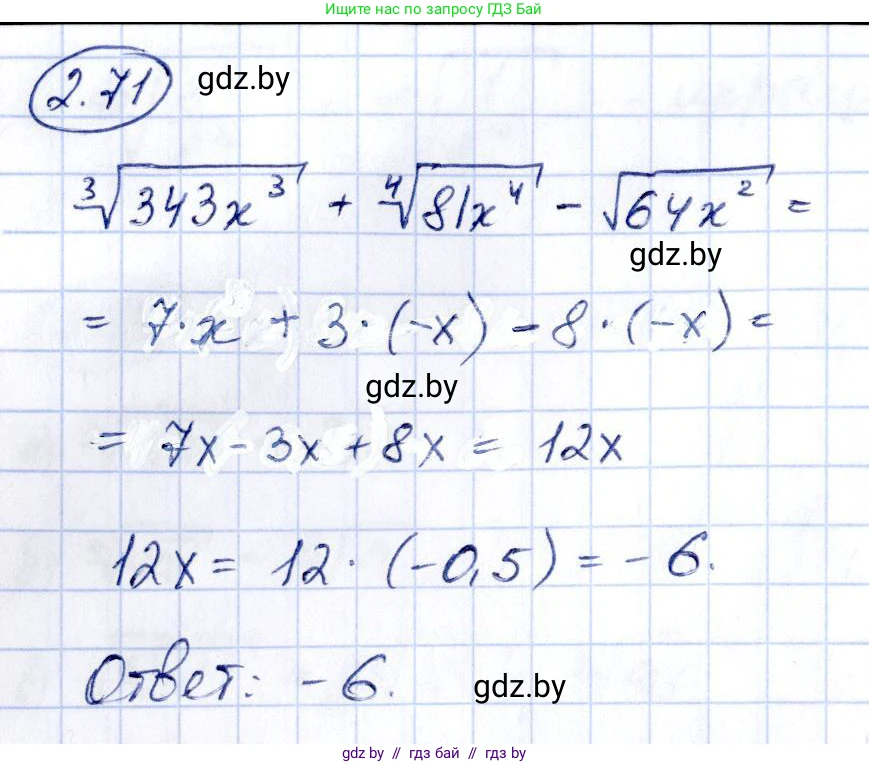 Ищите нас по запросу ГДЗ Бай
2.71 gdz.by
∛(343x³) + ∜(81x⁴) - √(64x²) =
gdz.by
= 7·x + 3·(-x) - 8·(-x) =
gdz.by
= 7x - 3x + 8x = 12x
12x = 12·(-0,5) = -6.
Ответ: -6. gdz.by
gdz by // гдз бай // gdz by